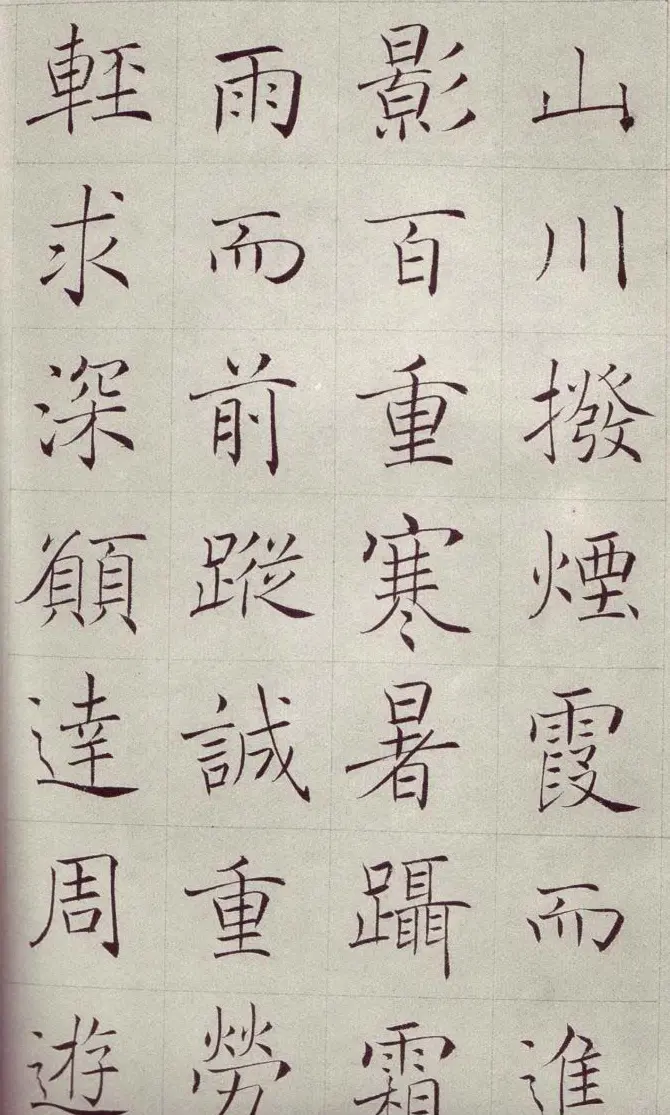 山川撥煙霞而進
影百重寒暑躡霜
雨而前蹤誠重勞
輕求深願達周遊